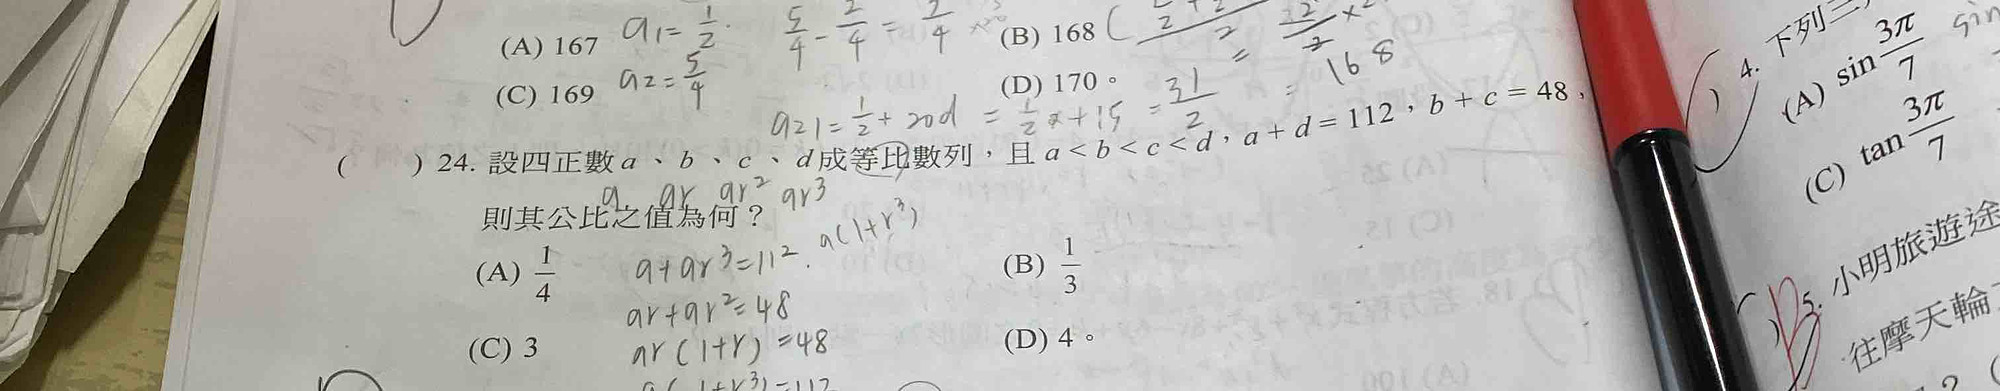 (A) 167 a₁=1/2 5/4-2/4=3/4 (B) 168
(C) 169 a₂=5/4 (D) 170。 =168
a21=1/2+20d=1/2+15=31/2
( ) 24. 設四正數a、b、c、d成等比數列,且a<b<c<d,a+d=112,b+c=48,
a ar ar² ar³
則其公比之值為何?
(A) 1/4 a+ar³=112. a(1+r³) (B) 1/3
ar+ar²=48
(C) 3 ar(1+r)=48 (D) 4。
a(1+r³)=112
4. 下列三
(A) sin 3π/7 sin
(C) tan 3π/7
5. 小明旅遊途
往摩天輪